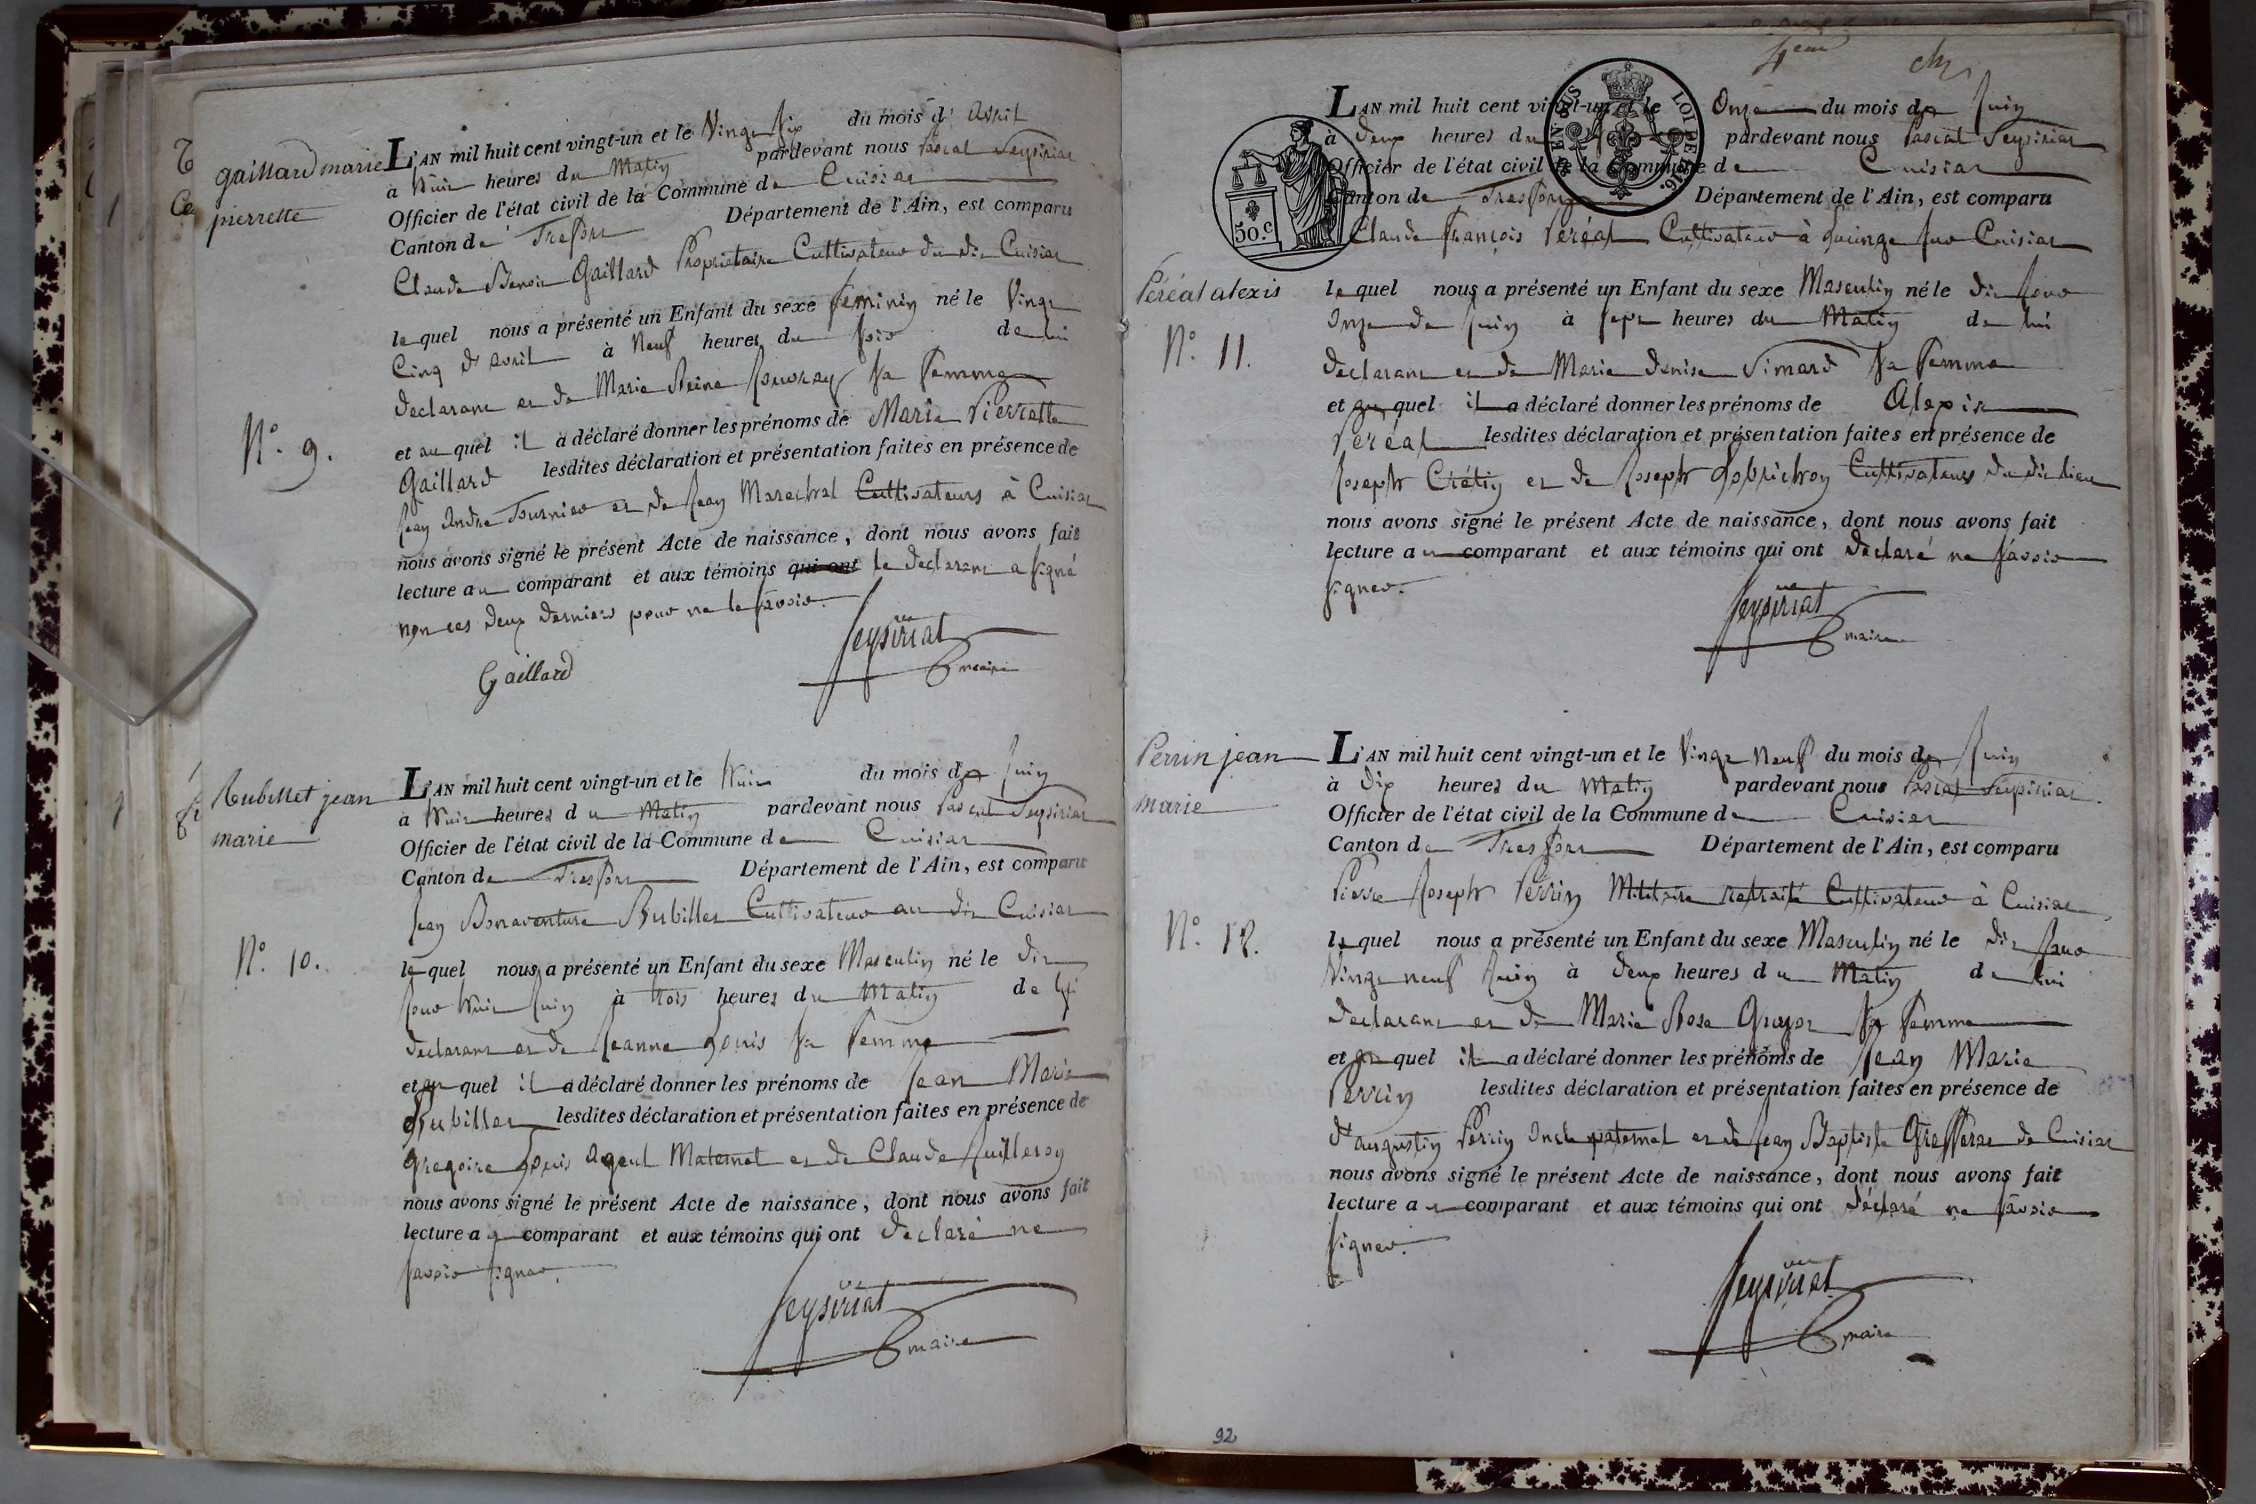 gaillard marie
pierrette
N.° 9.
L'AN mil huit cent vingt-un et le Vingt six du mois d' avril
à huit heures du Matin pardevant nous Pascal Seysiriat
Officier de l'état civil de la Commune de Cuisiat
Canton de Treffort Département de l'Ain, est comparu
Claude Benoit Gaillard Propriétaire Cultivateur du dit Cuisiat
lequel nous a présenté un Enfant du sexe feminin né le Vingt
Cinq d'avril à Neuf heures du soir de lui
declarant et de Marie Reine sa femme
et au quel il a déclaré donner les prénoms de Marie Pierrette
Gaillard lesdites déclaration et présentation faites en présence de
Jean andré Tournier et de Jean Marechal Cultivateurs à Cuisiat
nous avons signé le présent Acte de naissance, dont nous avons fait
lecture au comparant et aux témoins qui ont le declarant a signé
non ces deux derniers pour ne le savoir.
Gaillard
Seysiriat
maire
Rubillet jean
marie
N.° 10.
L'AN mil huit cent vingt-un et le huit du mois de juin
à huit heures du Matin pardevant nous Pascal Seysiriat
Officier de l'état civil de la Commune de Cuisiat
Canton de Treffort Département de l'Ain, est comparu
Jean Bonaventure Rubillet Cultivateur au dit Cuisiat
lequel nous a présenté un Enfant du sexe Masculin né le dit
jour huit juin à trois heures du Matin de lui
declarant et de Jeanne gouis sa femme
et au quel il a déclaré donner les prénoms de Jean Marie
Rubillet lesdites déclaration et présentation faites en présence de
gregoire gouis ayeul Maternel et de Claude Juilleron
nous avons signé le présent Acte de naissance, dont nous avons fait
lecture au comparant et aux témoins qui ont declaré ne
savoir signer.
Seysiriat
maire
4eme
EN SUS LOI DE 1816.
50.c
Péréal alexis
N.° 11.
L'AN mil huit cent vingt-un et le Onze du mois de juin
à deux heures du pardevant nous Pascal Seysiriat
Officier de l'état civil de la Commune de Cuisiat
Canton de Treffort Département de l'Ain, est comparu
Claude François Peréal Cultivateur à sur Cuisiat
lequel nous a présenté un Enfant du sexe Masculin né le dit jour
Onze de juin à sept heures du Matin de lui
declarant et de Marie denise Simard sa femme
et au quel il a déclaré donner les prénoms de Alexis
Peréal lesdites déclaration et présentation faites en présence de
Joseph Crétin et de Joseph Cultivateurs du dit lieu
nous avons signé le présent Acte de naissance, dont nous avons fait
lecture au comparant et aux témoins qui ont declaré ne savoir
signer.
Seysiriat
maire
Perrin jean
marie
N.° 12.
L'AN mil huit cent vingt-un et le Vingt Neuf du mois de juin
à dix heures du Matin pardevant nous Pascal Seysiriat
Officier de l'état civil de la Commune de Cuisiat
Canton de Treffort Département de l'Ain, est comparu
Pierre Joseph Perrin Militaire retraité Cultivateur à Cuisiat
lequel nous a présenté un Enfant du sexe Masculin né le dit jour
Vingt neuf juin à deux heures du Matin de lui
declarant et de Marie Rose sa femme
et au quel il a déclaré donner les prénoms de Jean Marie
Perrin lesdites déclaration et présentation faites en présence de
d'augustin Perrin Oncle paternel et de Jean Baptiste de Cuisiat
nous avons signé le présent Acte de naissance, dont nous avons fait
lecture au comparant et aux témoins qui ont déclaré ne savoir
signer.
Seysiriat
maire
92